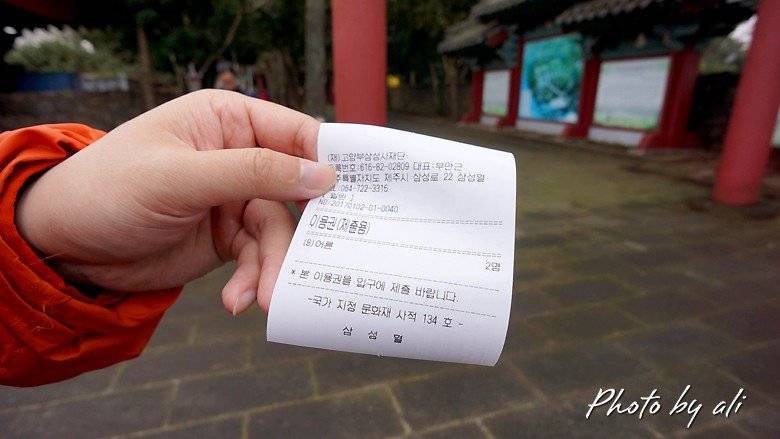 (재)고양부삼성사재단
록번호:616-82-02809 대표:부만근
주특별자치도 제주시 삼성로 22 삼성혈
:064-722-3315
NO:20170102-01-0040
이용권(제출용)
(8)어른
2명
* 본 이용권을 입구에 제출 바랍니다.
-국가 지정 문화재 사적 134 호 -
삼 성 혈
Photo by ali